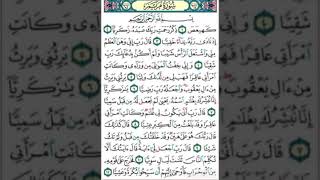 سورة مريم
بسم الله الرحمن الرحيم
كهيعص ذكر رحمت ربك عبده زكريا
إذ نادى ربه نداء خفيا قال رب إني وهن العظم مني
واشتعل الرأس شيبا ولم أكن بدعائك رب شقيا
وإني خفت الموالي من وراءي وكانت
امرأتي عاقرا فهب لي من لدنك وليا يرثني ويرث
من ءال يعقوب واجعله رب رضيا يزكريا
إنا نبشرك بغلم اسمه يحيى لم نجعل له من قبل سميا
قال رب أنى يكون لي غلم وكانت امرأتي
عاقرا وقد بلغت من الكبر عتيا قال كذلك
قال ربك هو علي هين وقد خلقتك من قبل ولم تك
شيئا قال رب اجعل لي ءاية قال ءايتك ألا
تكلم الناس ثلث ليال سويا فخرج على قومه
من المحراب فأوحى إليهم أن سبحوا بكرة وعشيا